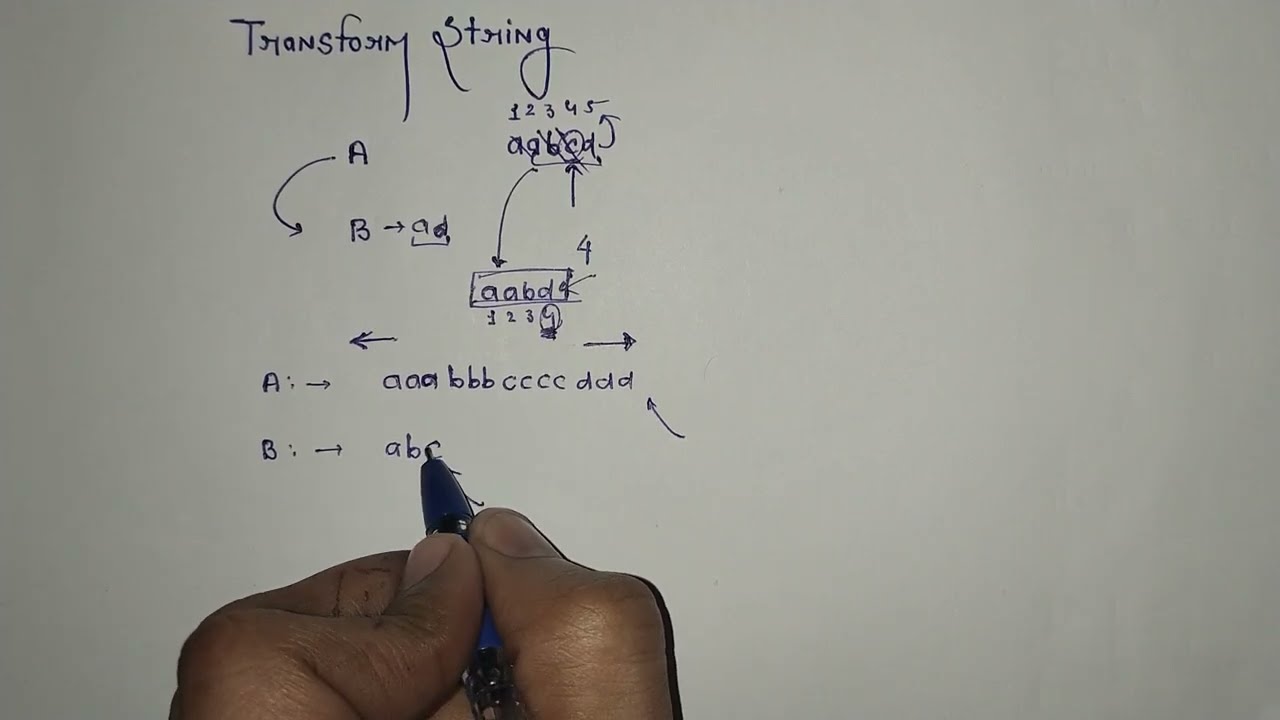 Transform String
1 2 3 4 5
A aabcd
B → ad
4
aabd
1 2 3 4
A : → aaabbbccccddd
B : → abc